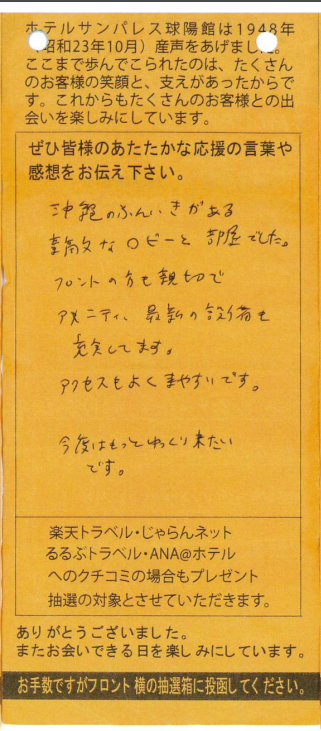 ホテルサンパレス球陽館は1948年
（昭和23年10月）産声をあげました。
ここまで歩んでこられたのは、たくさん
のお客様の笑顔と、支えがあったからで
す。これからもたくさんのお客様との出
会いを楽しみにしています。
ぜひ皆様のあたたかな応援の言葉や
感想をお伝え下さい。
沖縄のふんいきがある
素敵なロビーと部屋でした。
フロントの方も親切で
アメニティ、最新の設備も
充実してます。
アクセスもよく来やすいです。
今度はもっとゆっくり来たい
です。
楽天トラベル・じゃらんネット
るるぶトラベル・ANA@ホテル
へのクチコミの場合もプレゼント
抽選の対象とさせていただきます。
ありがとうございました。
またお会いできる日を楽しみにしています。
お手数ですがフロント横の抽選箱に投函してください。